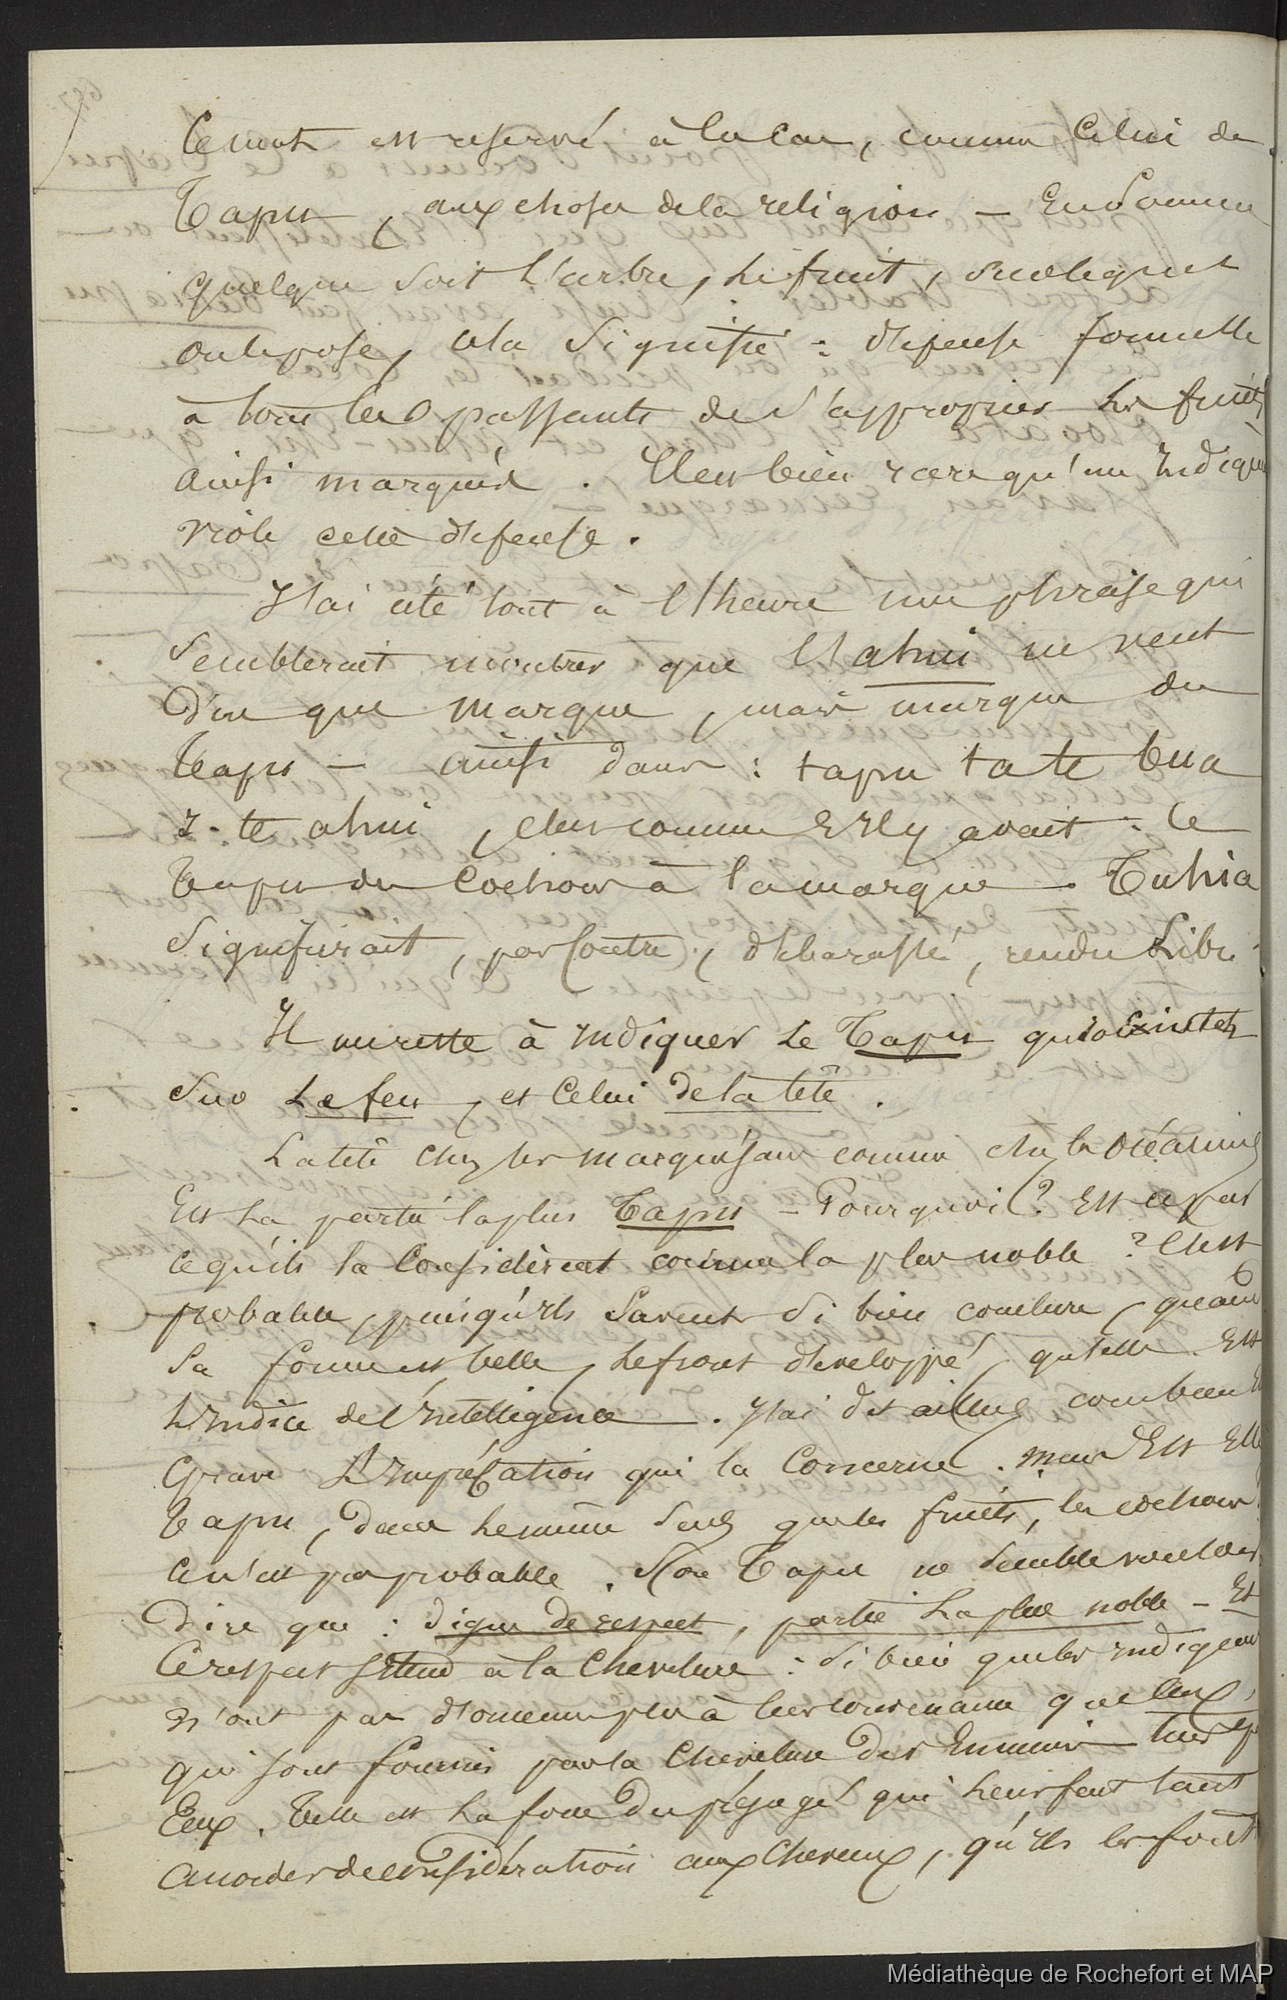 Ce mot est reservé à la loi, comme celui de
Tapu, aux choses de la religion — En somme
quelque soit l'arbre, le fruit, sur lequel
on le pose, cela signifie : défense formelle
à tous les passants de s'approprier les fruits
ainsi marqués. Il est bien rare qu'un Indigène
viole cette défense.
J'ai cité tout à l'heure une phrase qui
semblerait montrer que l'ahui ne veut
dire que marque, mais marque du
Tapu — ainsi dans : tapu ta te bua
i te ahui, c'est comme s'il y avait : le
Tapu du cochon à la marque. Tuhia
signifierait, par contre, débarassé, rendu libre
Il me reste à indiquer le Tapu qui existe
sur le feu, et celui de la tête.
La tête chez les marquisans comme chez les océaniens
est la partie la plus Tapu — Pourquoi ? Est ce par
ce qu'ils la considèrent comme la plus noble ? C'est
probable, puisqu'ils savent si bien conclure, quand
sa forme est belle, le front développé, qu'elle est
l'indice de l'intelligence. J'ai dit ailleurs combien est
grave l'imprécation qui la concerne. mais est elle
tapu, dans le même sens que les fruits, les cochons ?
ce n'est pas probable. Son Tapu ne semble vouloir
dire que : digne de respect, partie la plus noble — Et
ce respect s'étend à la chevelure : si bien que les indigènes
n'ont pas d'ornemens plus à leur convenance que ceux,
qui sont fournis par la chevelure des Ennemis tués p
Eux. Telle est la force du préjugé qui leur fait tant
accorder de considération aux cheveux, qu'ils les font
Médiathèque de Rochefort et MAP